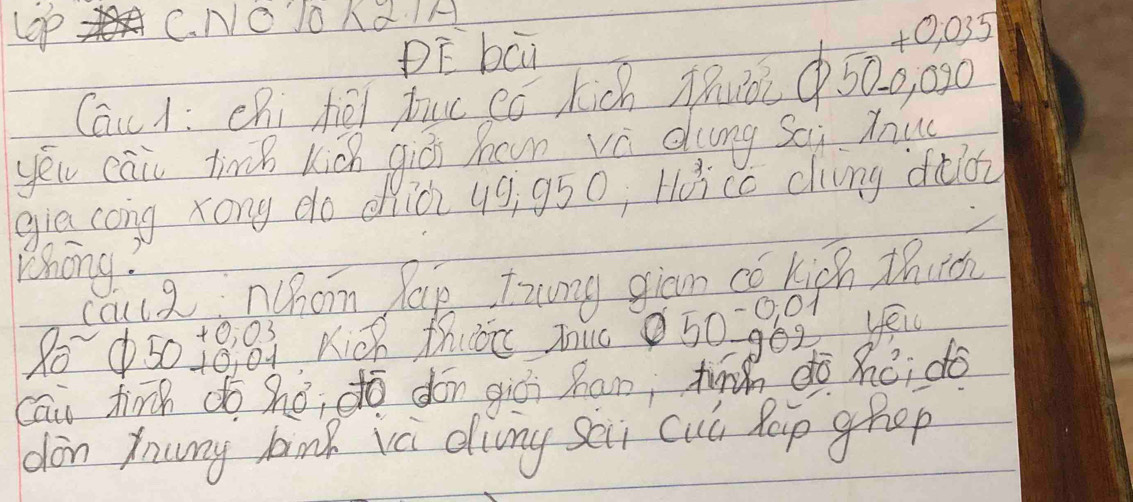 Lớp C.NÔ TÔ K21A
ĐỀ bài
+0,035
Câu 1: chi tiết trục có kích thước φ 50-0,090
yêu cầu tính kích giới hạn và dung sai trục
gia công xong đo được 49,950, Hỏi có dùng được
không?
câu 2: nhóm lắp trung gian có kích thước
lỗ φ50 +0,03 +0,01 kích thước trục φ 50 -0,01 -0,02 yêu
cầu tính độ hở, độ dôi giới hạn, tính độ hở, độ
dôn trung bình và dung sai của lắp ghép